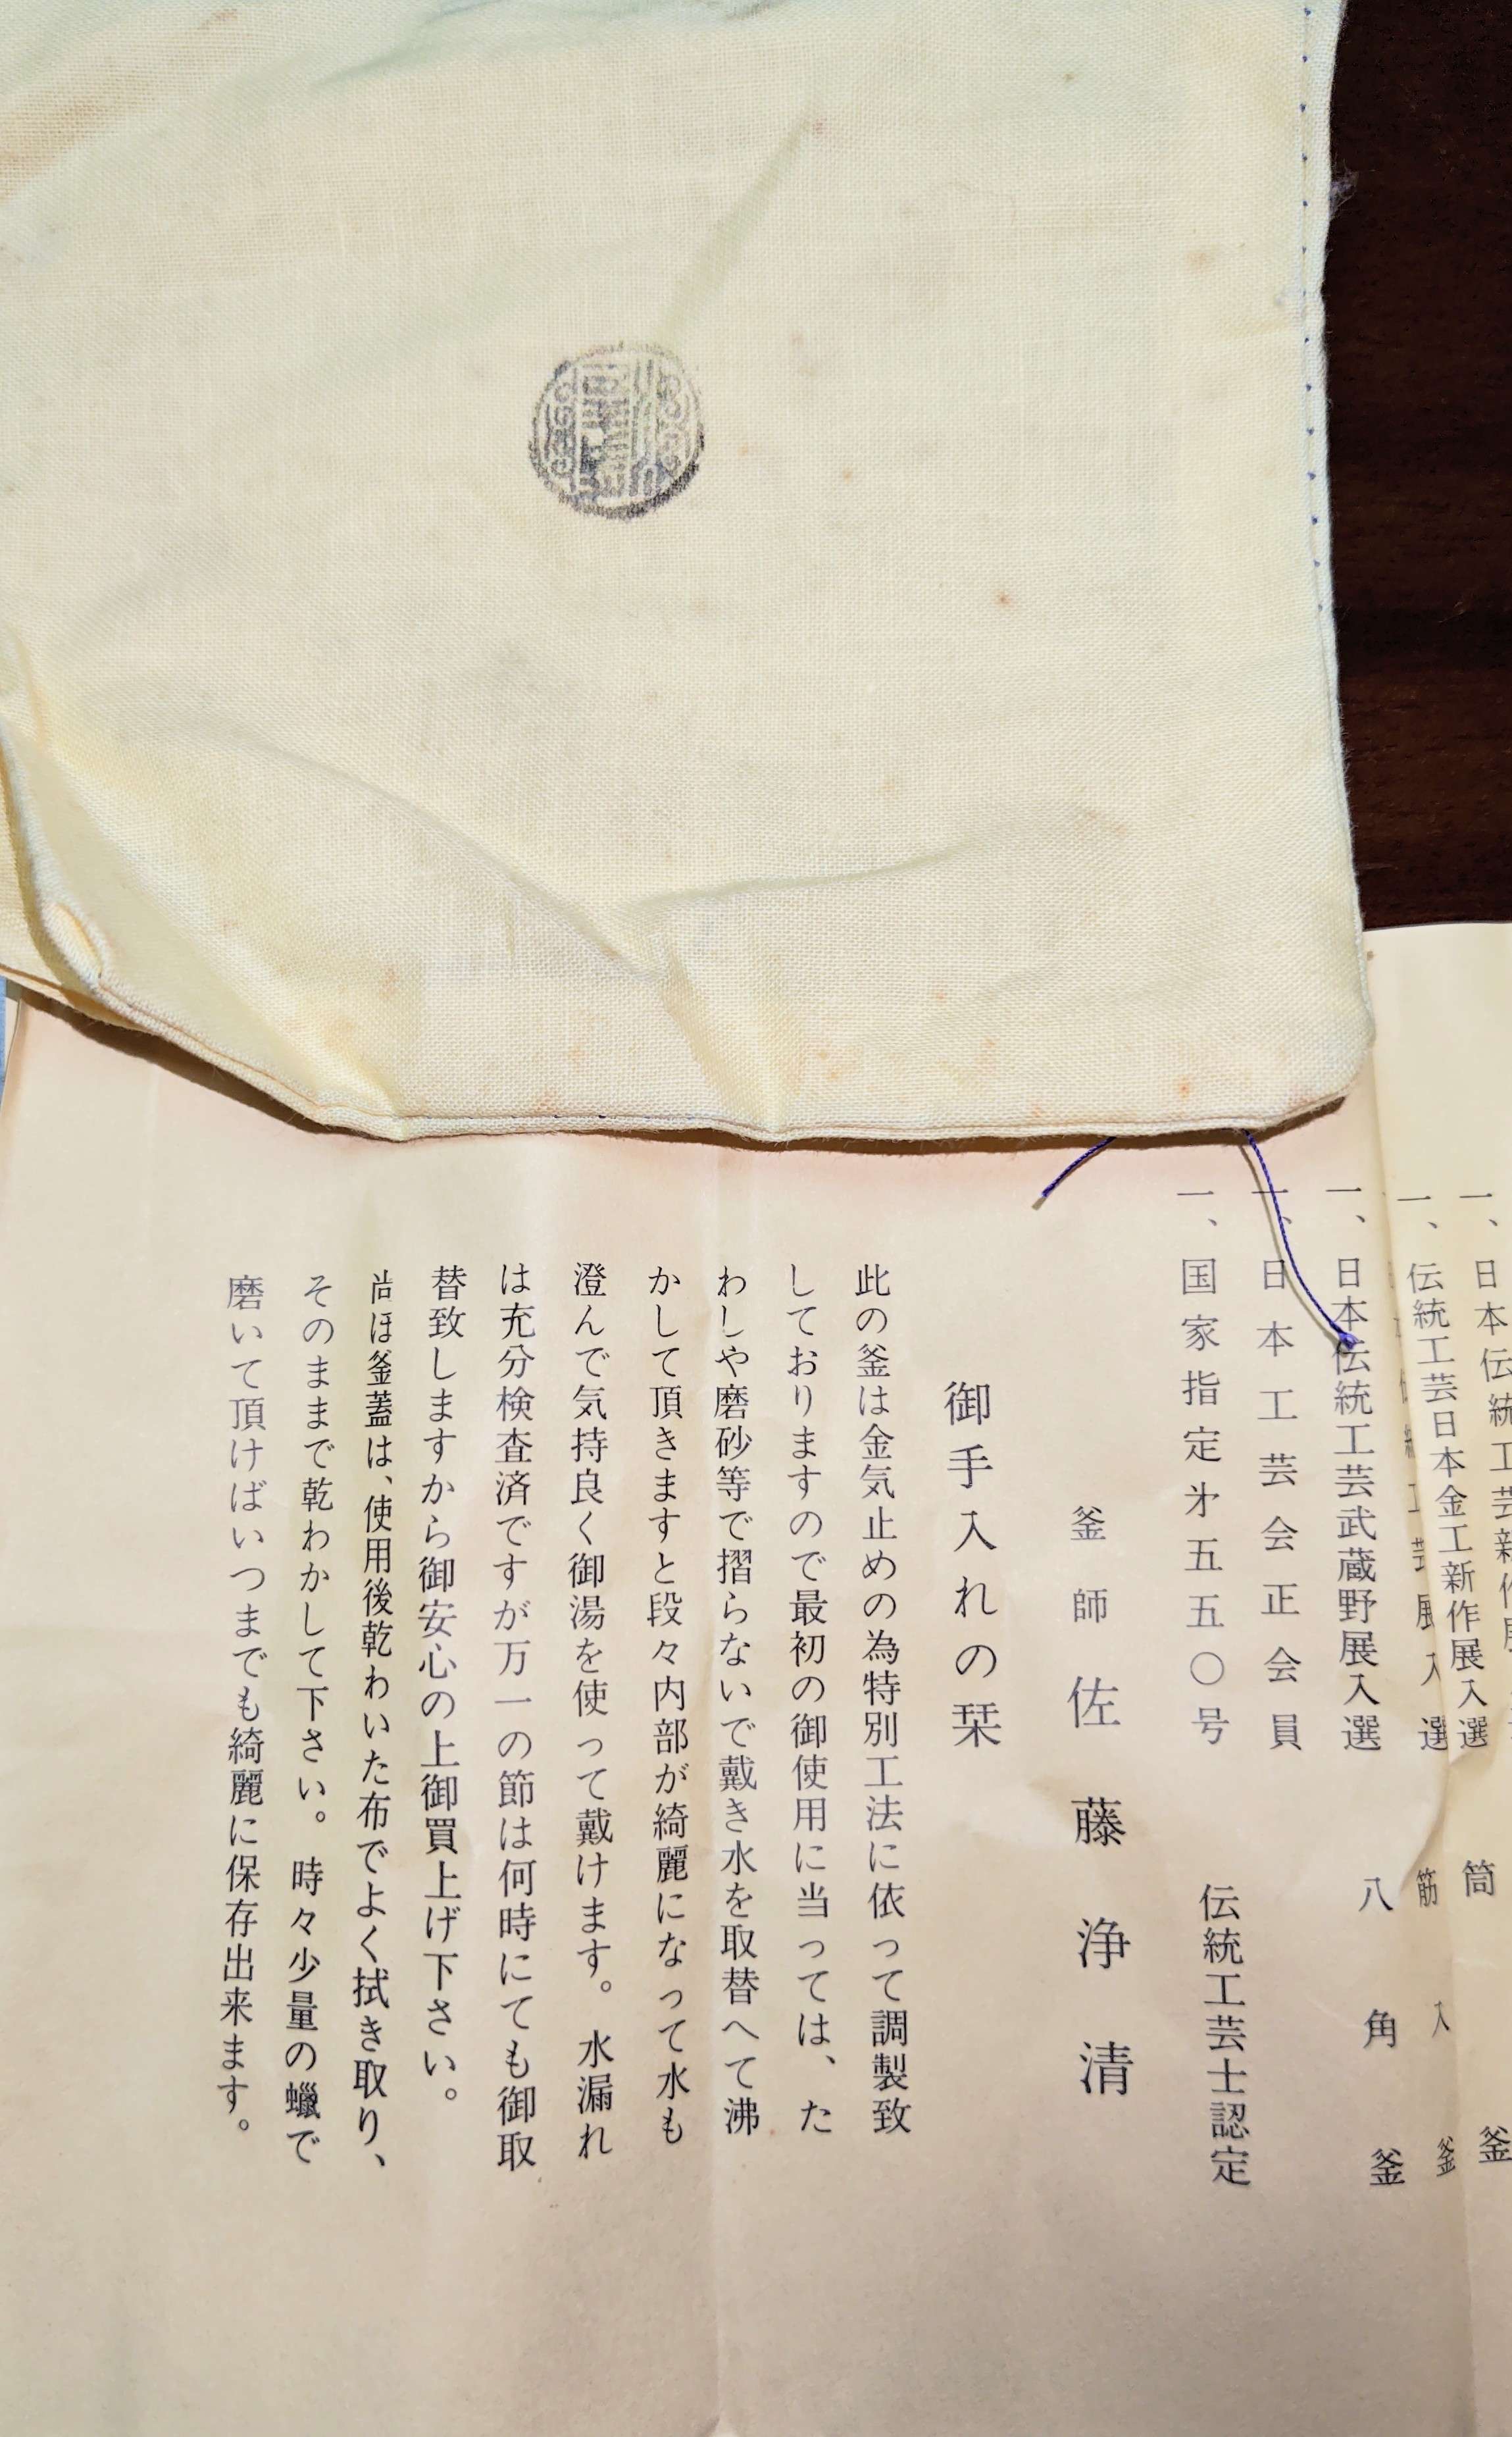 一、日本伝統工芸新作展
筒
釜
一、伝統工芸日本金工新作展入選
筋
入
釜
一、日本伝統工芸武蔵野展入選
八角釜
一、日本工芸会正会員
一、国家指定㐧五五〇号
伝統工芸士認定
釜師 佐藤浄清
御手入れの栞
此の釜は金気止めの為特別工法に依って調製致
しておりますので最初の御使用に当っては、た
わしや磨砂等で摺らないで戴き水を取替へて沸
かして頂きますと段々内部が綺麗になって水も
澄んで気持良く御湯を使って戴けます。水漏れ
は充分検査済ですが万一の節は何時にても御取
替致しますから御安心の上御買上げ下さい。
尚ほ釜蓋は、使用後乾わいた布でよく拭き取り、
そのままで乾わかして下さい。時々少量の蠟で
磨いて頂けばいつまでも綺麗に保存出来ます。